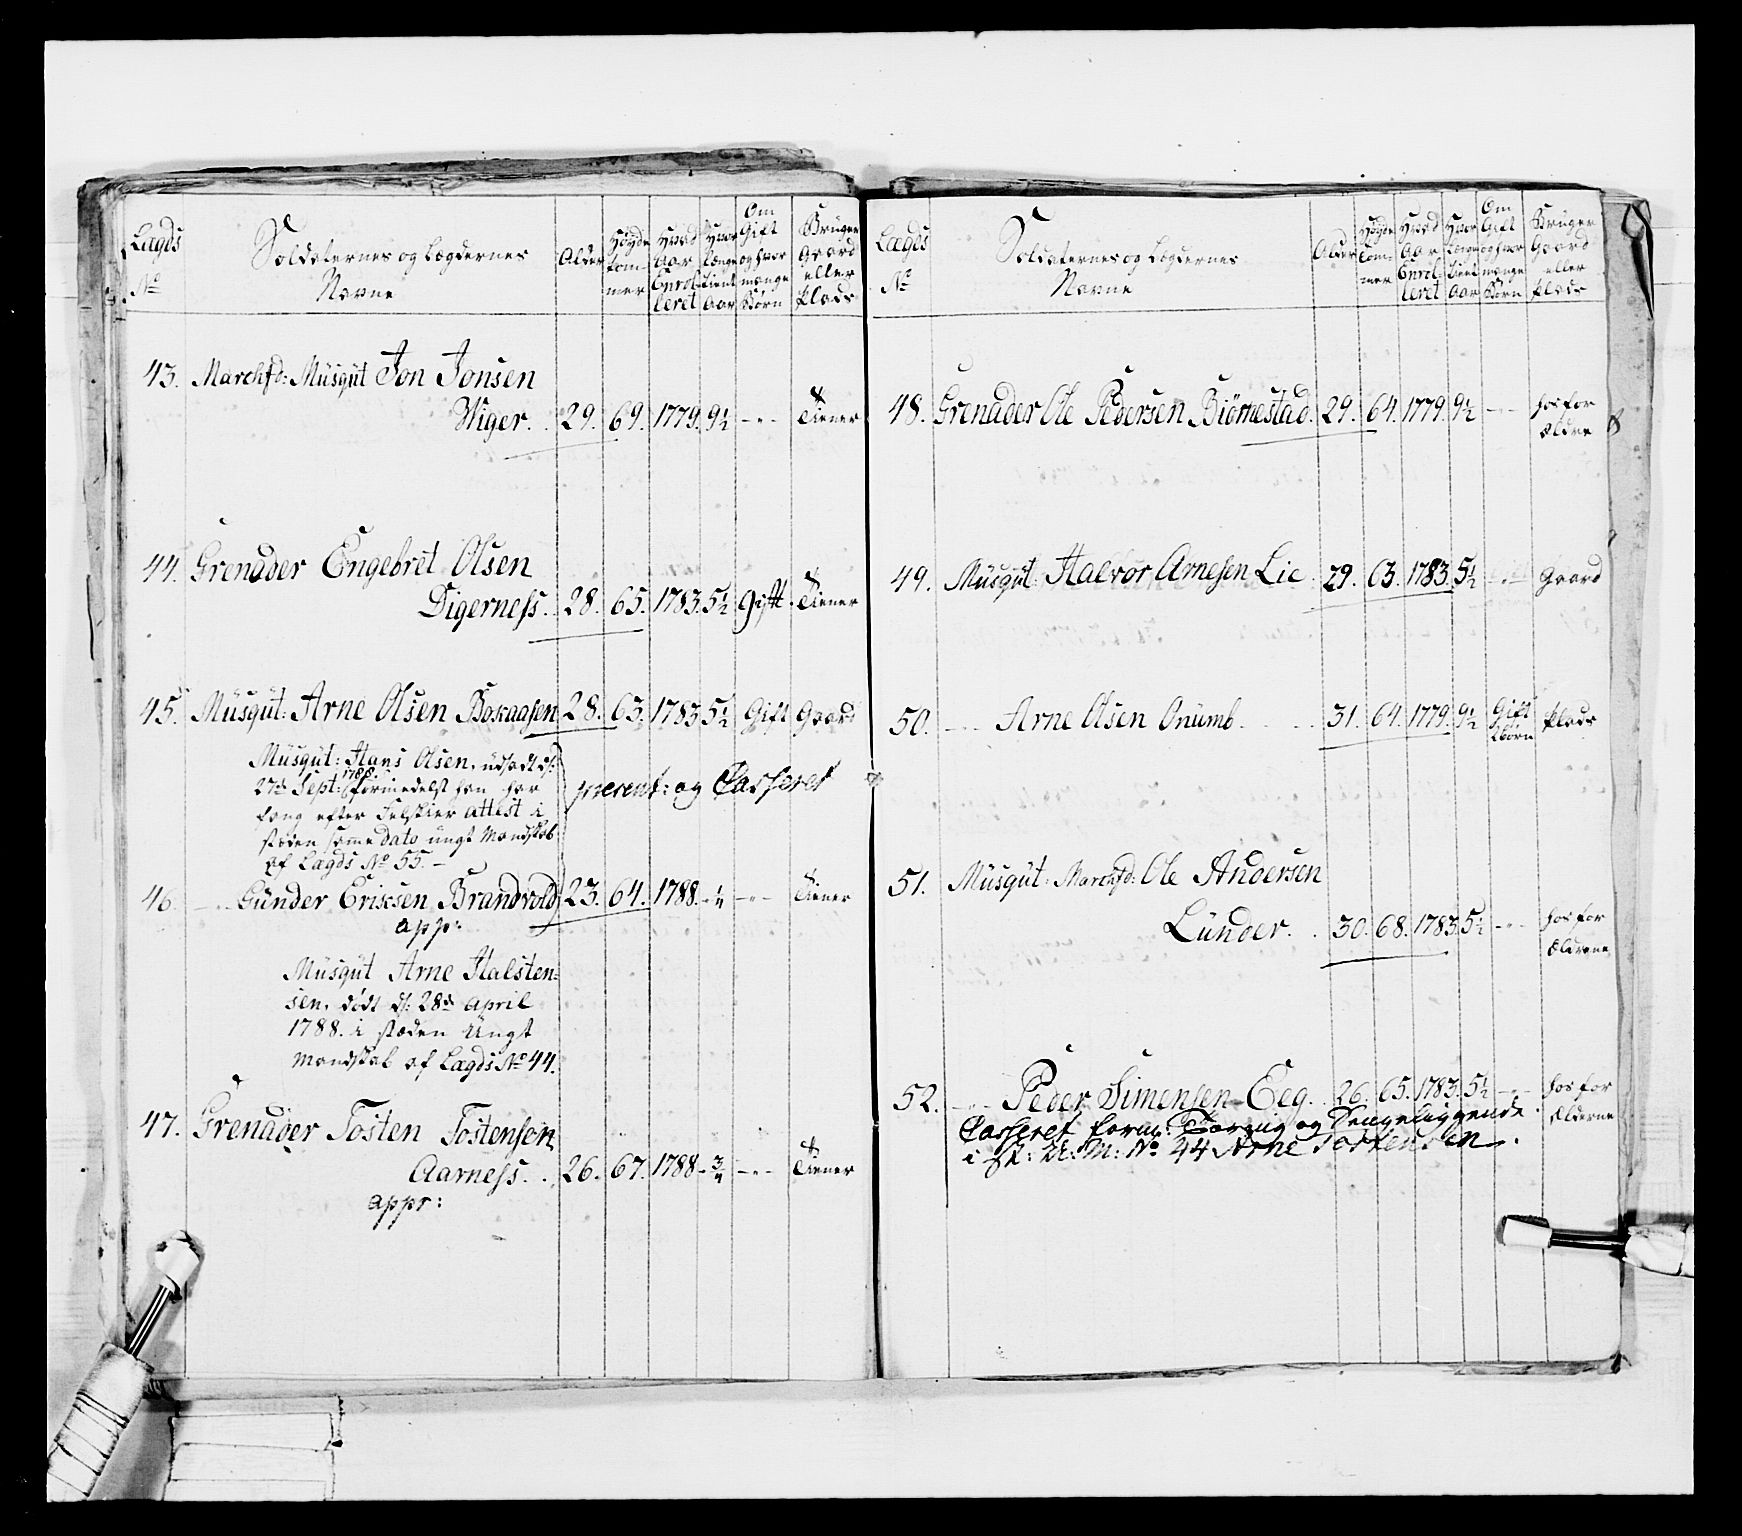 Lægds
No
Soldaternes og Lægdernes
Navne
Alder
Høyde
tom-
mer
Hvad
Aar
Enrol-
leret
Hvor
længe
tient
Aar
Om
Gift
og hvor
mange
Børn
Bruger
Gaard
eller
Plads
43. Marchfd: Musqüt Jon Jonsen
Wiger. 29. 69. 1779. 9½ -"- Tiener
44. Grenader Engebret Olsen
Digerness. 28. 65. 1783. 5½ Gift. Tiener
45. Müsqüt: Arne Olsen Boxaasen 28. 63. 1783. 5½ Gift Gaard
Müsqüt: Hans Olsen, udsadt d:
27de Sept: 1788 formedelst han har
efter Feldskier attest i
stæden samme dato üngt Mandskab
af Lægds No 55. -
present: og Casseret
46. -"- Günder Ericksen Brandvold 23. 64. 1788. -¼ -"- Tiener
app:
Müsqüt Arne Halsten-
sen, dødt d: 28de April
1788. i stæden Üngt
Mandskab af Lægds No 44.
47. Grenader Tosten Tostensen
Aarness. 26. 67. 1788 - ¾ -"- Tiener
appr:
Lægds
No
Soldaternes og Lægdernes
Navne
Alder
Høyde
tom-
mer
Hvad
Aar
Enrol-
leret
Hvor
længe
tient
Aar
Om
Gift
og hvor
mange
Børn
Bruger
Gaard
eller
Plads
48. Grenader Ole Pedersen Biörnestad. 29. 64. 1779. 9½ -"- hos for
ældre
49. Müsqüt: Halvor Arnesen Lie 29. 63. 1783. 5½ -"- Gaard
50. -"- Arne Olsen Onümb 31. 64. 1779. 9½ Gift Plads
2 børn
51. Müsqüt: Marchfd: Ole Andersen
Lünder. 30. 68. 1783. 5½ -"- hos for
Ælderne
52. -"- Peder Simensen Eeg. 26. 65. 1783. 5½ -"- hos for
Ælderne
Casseret og Sengeliggende
i st: U: M: No 44 Arne Torstensen.